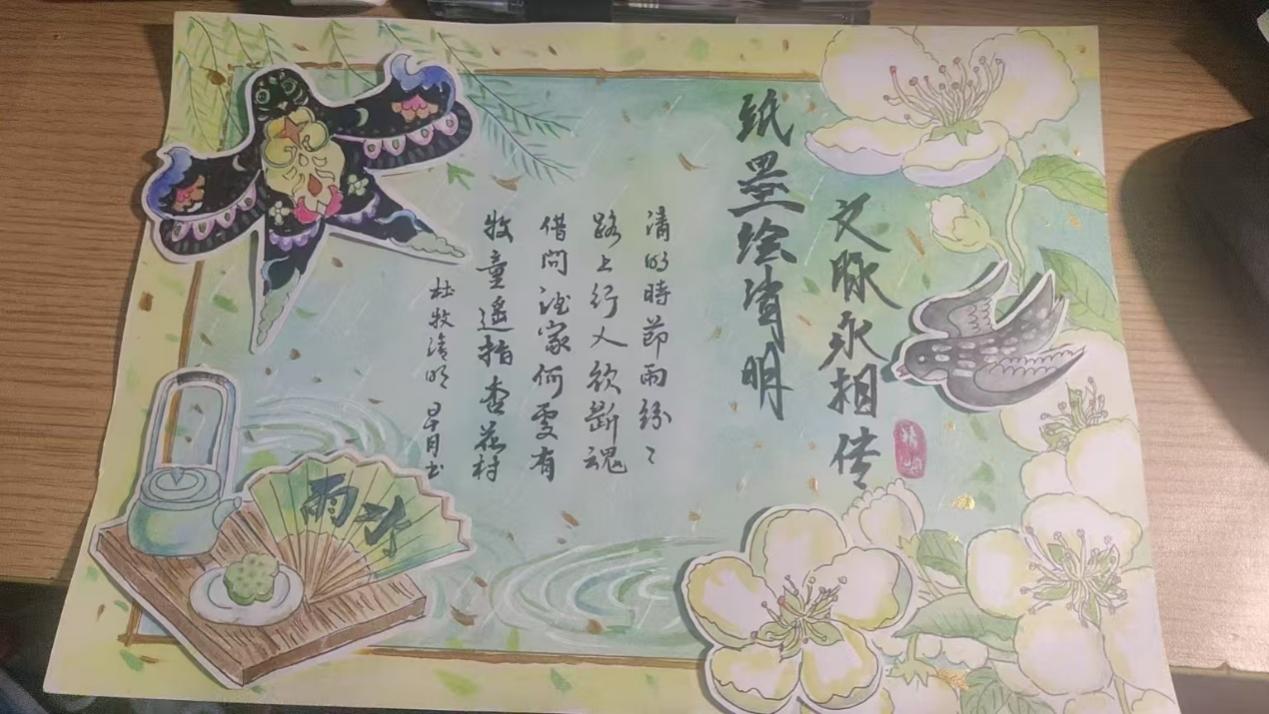 纸墨绘清明
文脉永相传
清明
清明時節雨紛々
路上行人欲斷魂
借問酒家何處有
牧童遙指杏花村
杜牧清明 月书
雨水